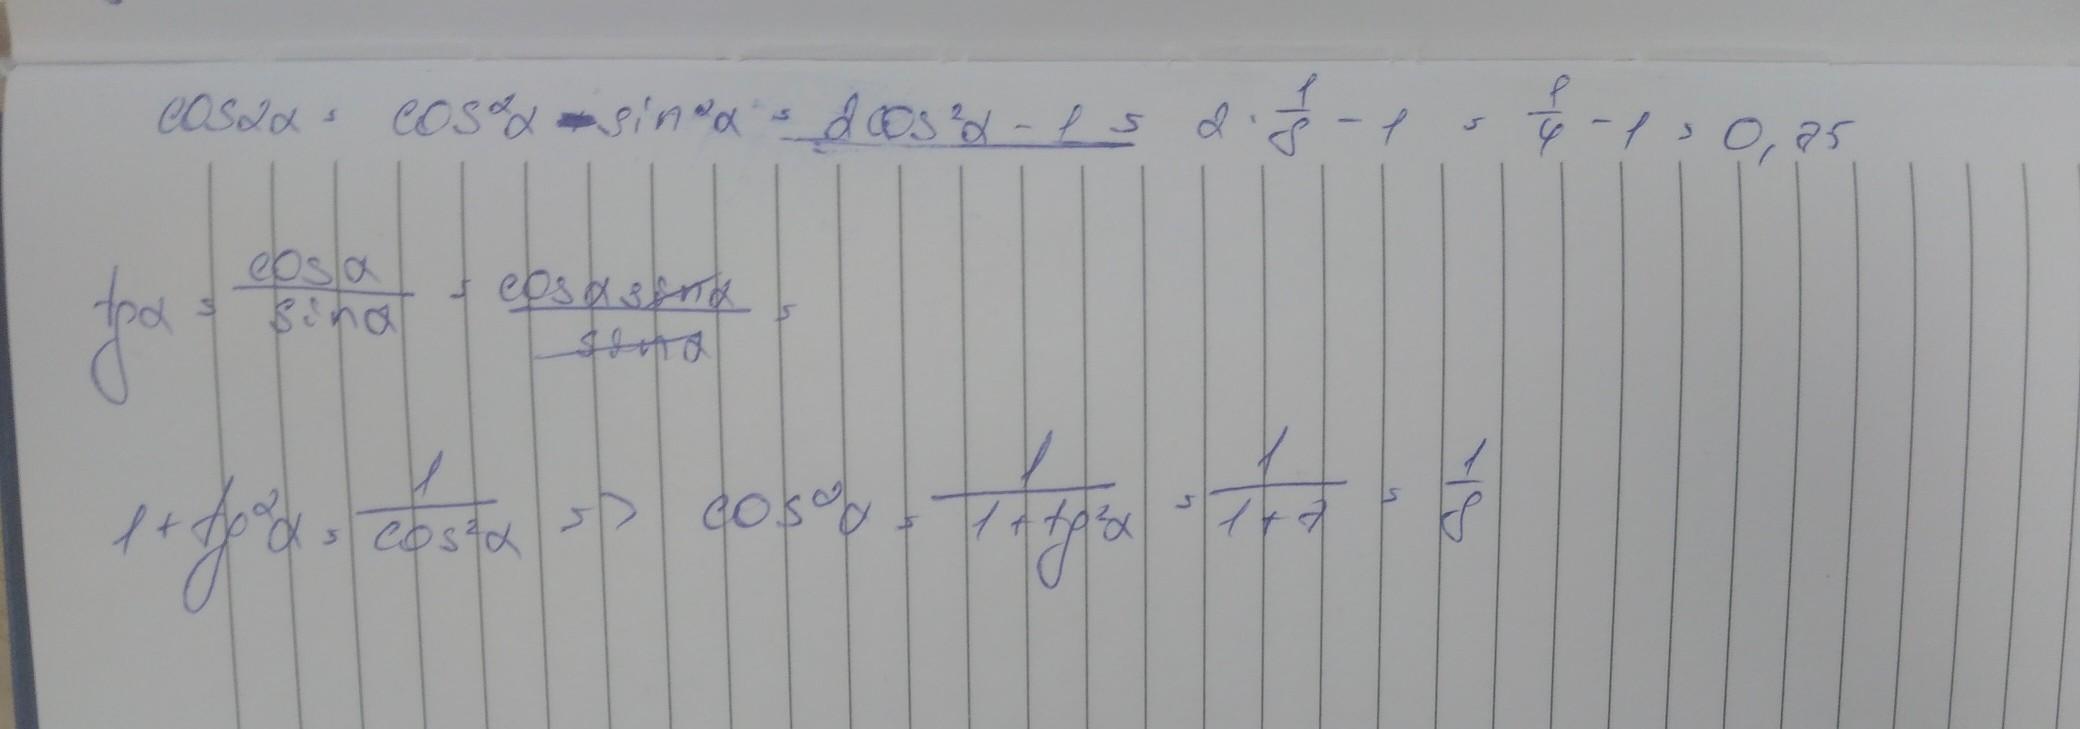 cos2α = cos²α - sin²α = 2cos²α - 1 = 2 · 1/8 - 1 = 1/4 - 1 = 0,75
tgα = cosα/sinα = cosα sinα/sinα =
1 + tg²α = 1/cos²α => cos²α = 1/(1 + tg²α) = 1/(1+7) = 1/8